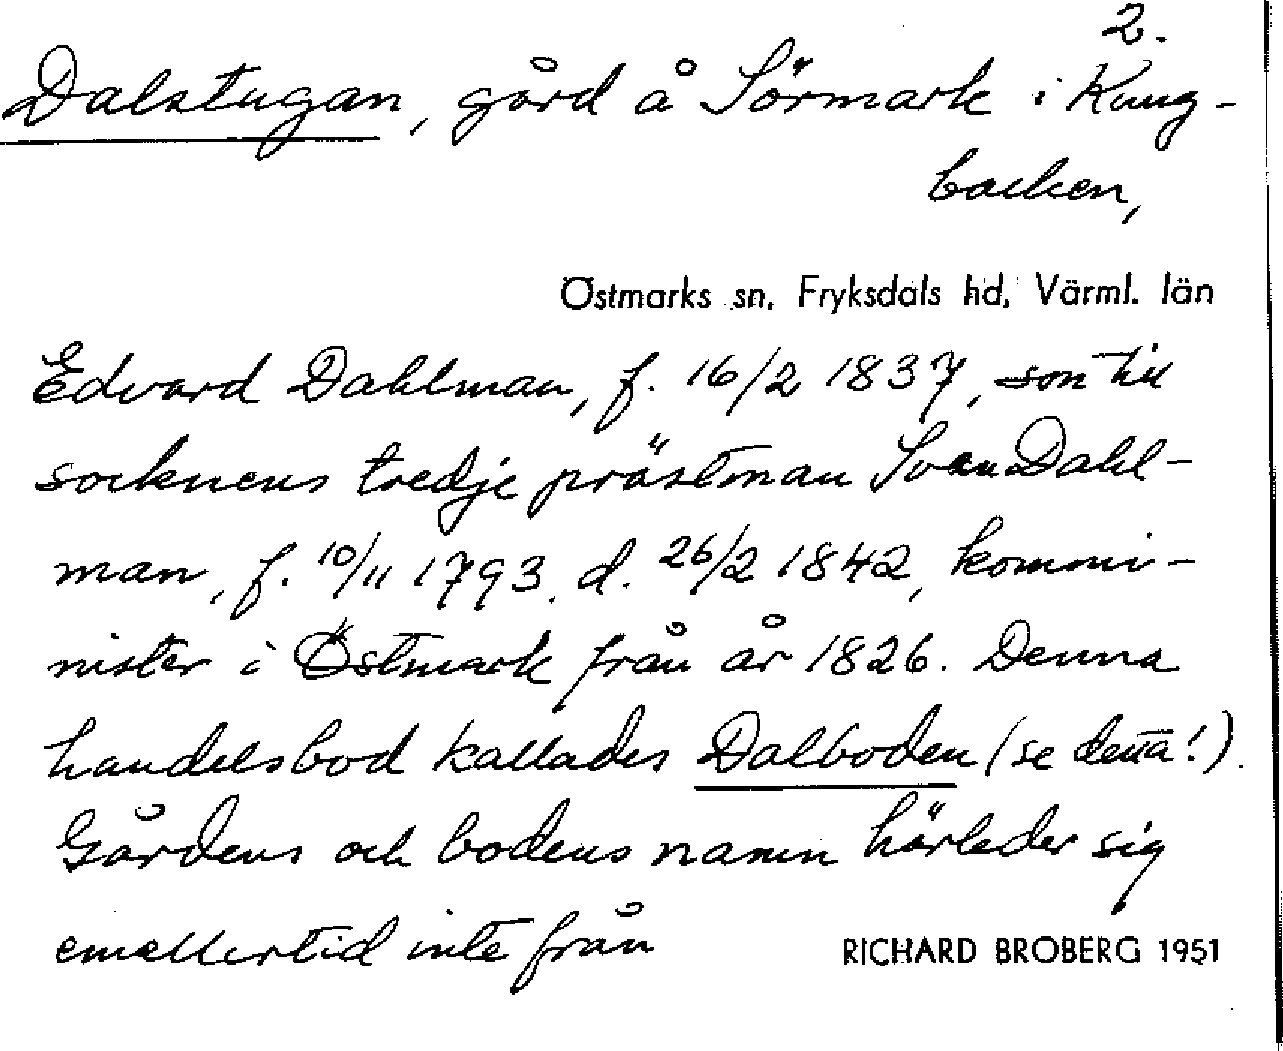 2.
Dalstugan, gård å Sörmark i Kung-
backen,
Östmarks sn, Fryksdals hd, Värml. län
Edvard Dahlman, f. 16/2 1837, son till
socknens tredje prästman Sven Dahl-
man, f. 10/11 1793, d. 26/2 1842, kommi-
nister i Östmark från år 1826. Denna
handelsbod kallades Dalboden (se detta!).
Gårdens och bodens namn härleder sig
emellertid inte från
RICHARD BROBERG 1951